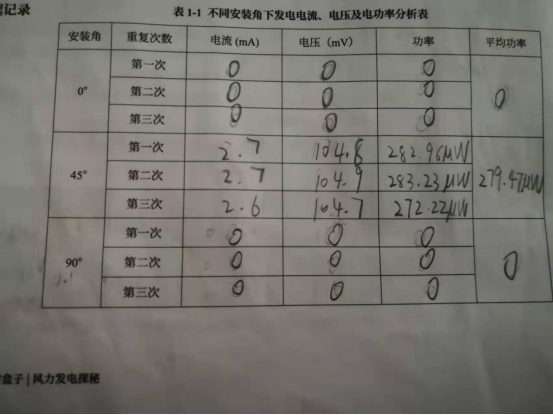 记录
表 1-1 不同安装角下发电电流、电压及电功率分析表
安装角 重复次数 电流 (mA) 电压 (mV) 功率 平均功率
0° 第一次 0 0 0 0
第二次 0 0 0
第三次 0 0 0
45° 第一次 2.7 104.8 282.96μW 279.47μW
第二次 2.7 104.9 283.23μW
第三次 2.6 104.7 272.22μW
90° 第一次 0 0 0 0
第二次 0 0 0
第三次 0 0 0
盒子 | 风力发电探秘